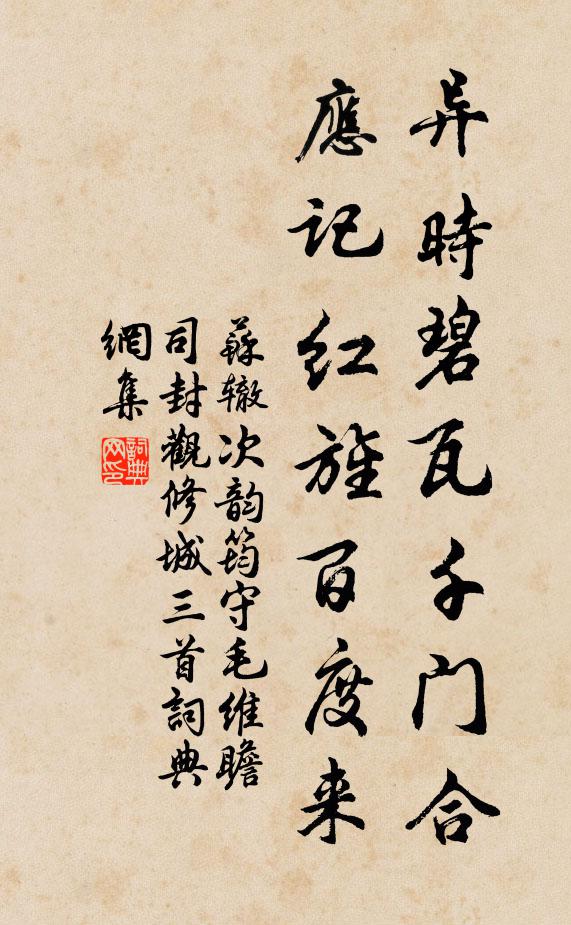 异時碧瓦千门合
應记红旌百度来
蘇辙次韵筠守毛维瞻
司封觀修城三首詞典
網集
詞典
网印